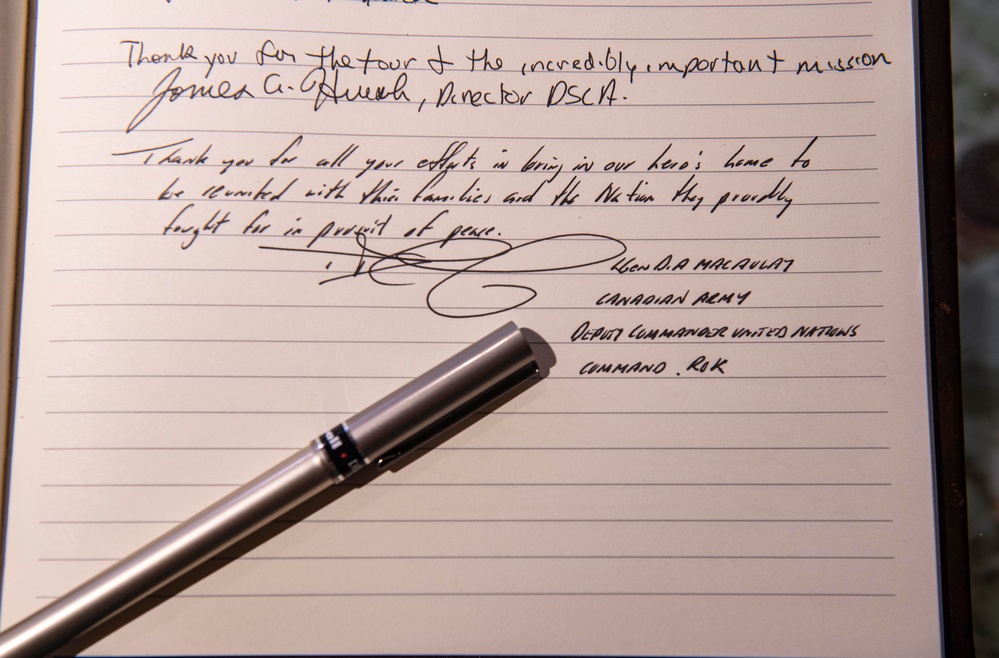 Thank you for the tour & the incredibly important mission
James A. Hursch, Director DSCA.
Thank you for all your efforts in bring in our hero's home to
be reunited with thier families and the Nation they proudly
fought for in pursuit of peace.
LGen D.A MACAULAY
CANADIAN ARMY
DEPUTY COMMANDER UNITED NATIONS
COMMAND . ROK